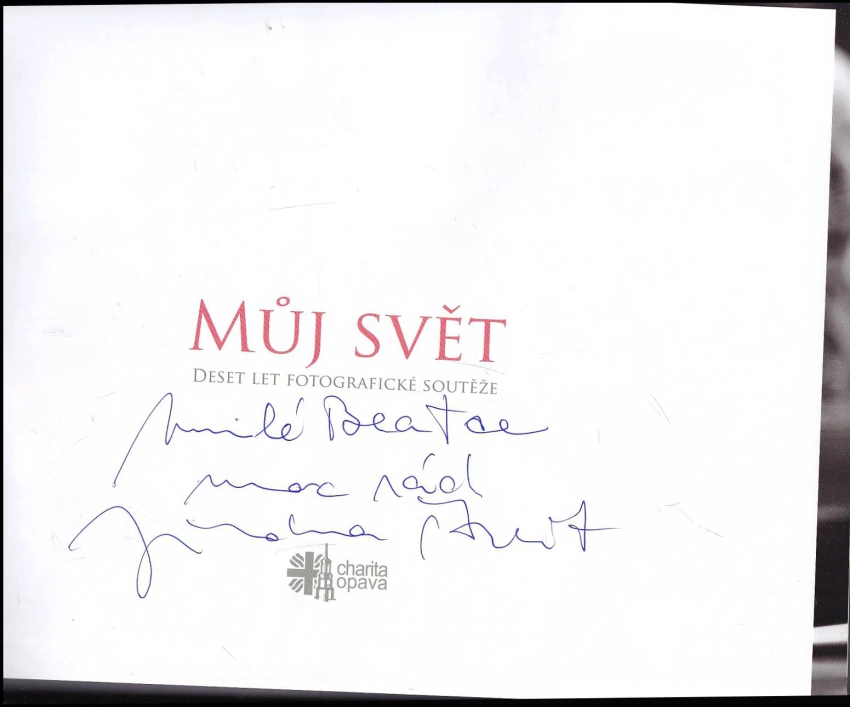 MŮJ SVĚT
DESET LET FOTOGRAFICKÉ SOUTĚŽE
milé Beatce
moc rád
Jindra Štreit
charita
opava